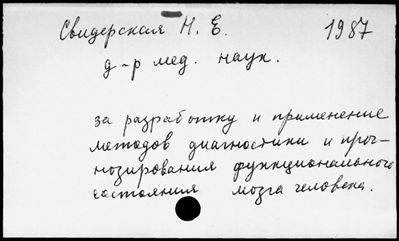 Свидерская Н. Е. 1987
д-р мед. наук.
за разработку и применение
методов диагностики и прог-
нозирования функционального
состояния мозга человека.